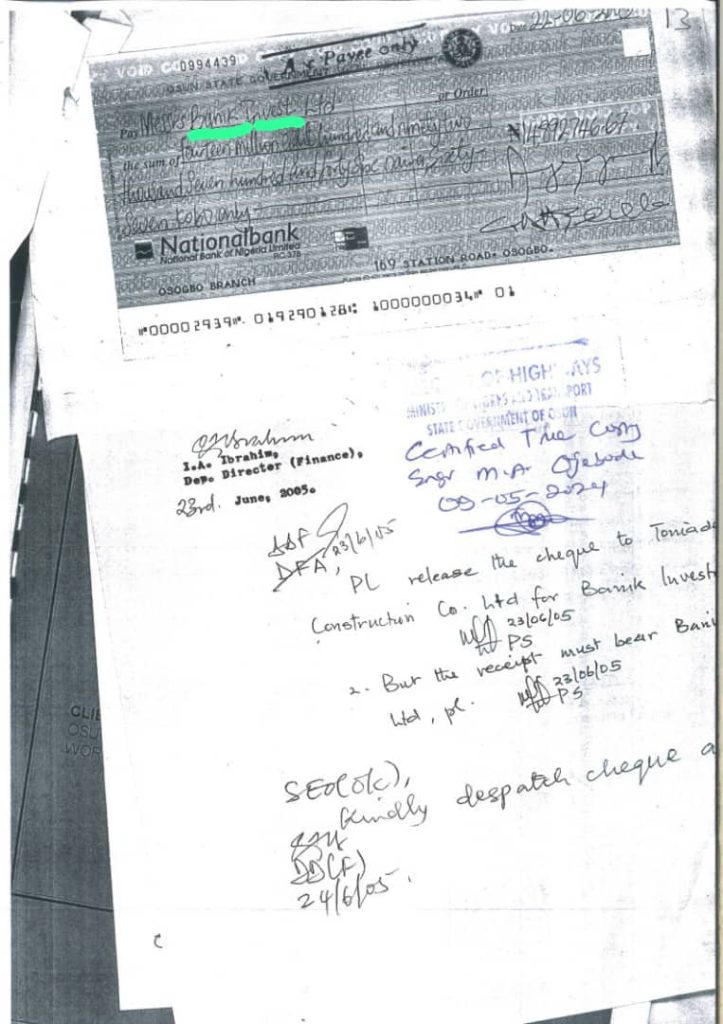 13
VOID
0994439
A/c Payee only
Date 22-06-2005
OSUN STATE GOVERNMENT
Pay Messrs Banik Invest Ltd or Order
the sum of fourteen Million eight hundred and ninety two
thousand Seven hundred and forty six naira sixty
Seven kobo only
₦14,892,746.67
Nationalbank
National Bank of Nigeria Limited
RC 378
169 STATION ROAD, OSOGBO.
OSOGBO BRANCH
⑈00002939⑈ 019290128⑆ 1000000034⑈ 01
OF HIGHWAYS
MINISTRY OF WORKS AND TRANSPORT
STATE GOVERNMENT OF OSUN
Certified True Copy
Engr M.A. Ojebode
09-05-2024
I.A. Ibrahim,
Dep. Director (Finance),
23rd. June, 2005.
23/6/05
DFA,
PL release the cheque to
Construction Co. Ltd for Banik Invest
23/06/05
PS
2. But the receipt must bear Bani
Ltd, pl.
23/06/05
PS
SEO(OK),
Kindly despatch cheque a
DD(F)
24/6/05.
CLIE
OSU
WOR